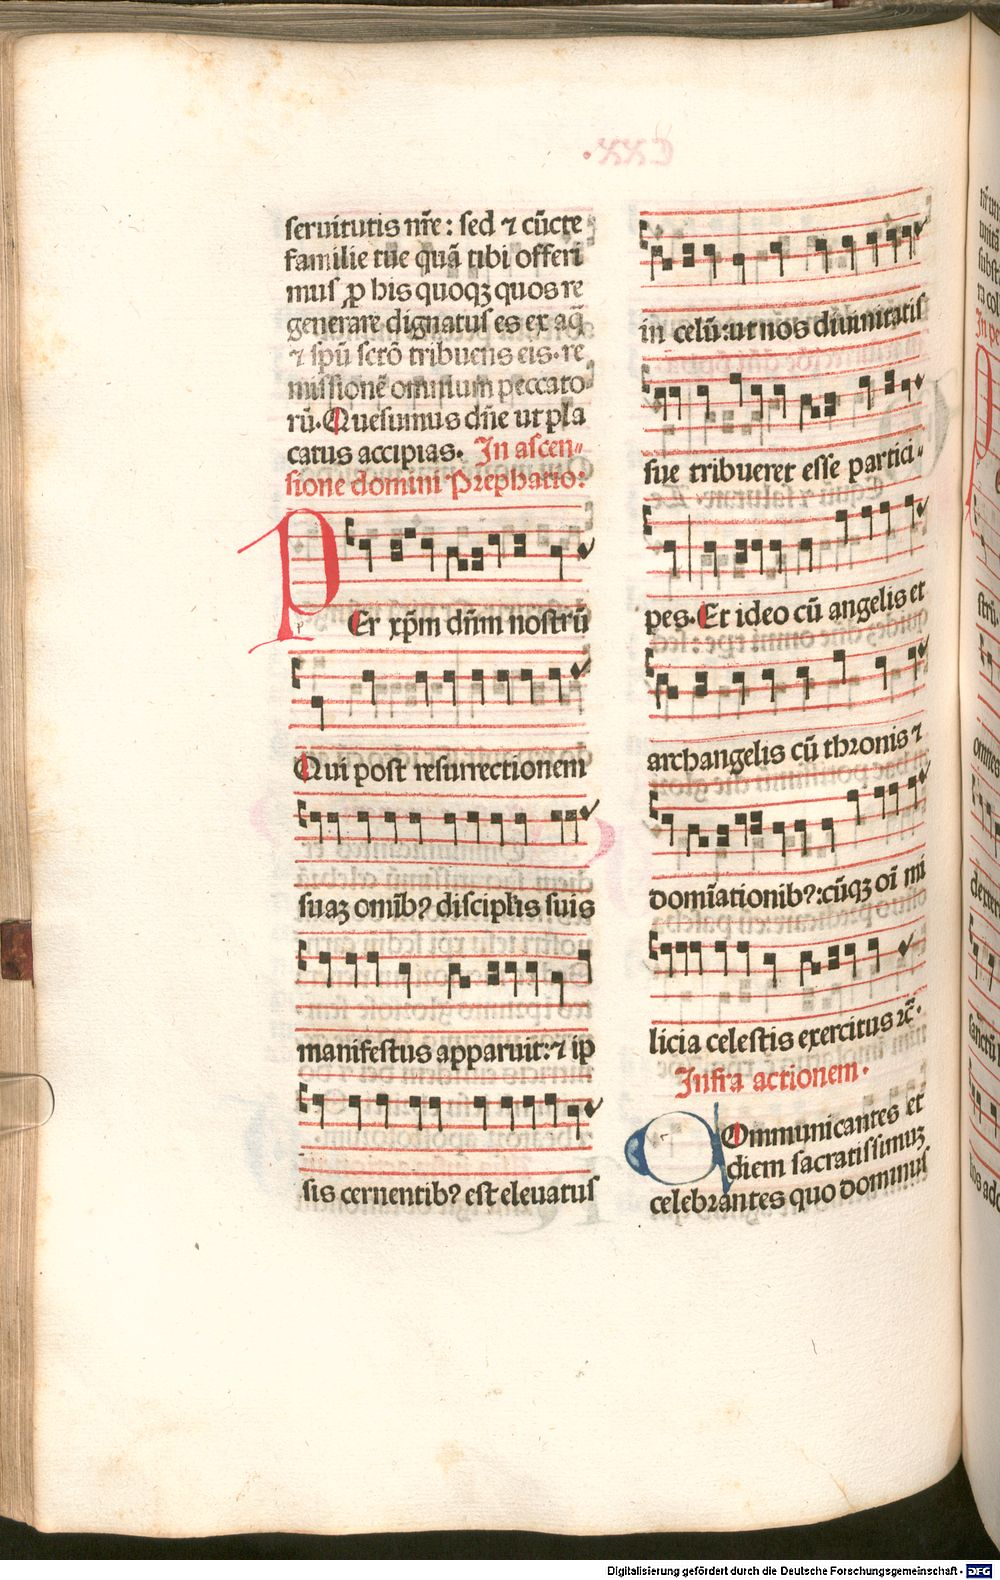 seruitutis nr̄e : sed ⁊ cūcte
familie tue quā tibi offeri
mus ꝓ his quoqꝫ quos re
generare dignatus es ex aq̄
⁊ spū sctō tribuens eis. re
missionē omnium peccato
rū. Quesumus dn̄e ut pla
catus accipias. In ascen-
sione domini Prephatio:
Per xp̄m dn̄m nostrū
Qui post resurrectionem
suaꝫ omībꝰ discipl̄is suis
manifestus apparuit: ⁊ ip
sis cernentibꝰ est eleuatus
in celū: ut nos diuinitatis
sue tribueret esse partici-
pes. Et ideo cū angelis et
archangelis cū thronis ⁊
domīationibꝰ: cūqꝫ oī mi
licia celestis exercitus ⁊c̄.
Infra actionem.
Communicantes et
diem sacratissimuꝫ
celebrantes quo dominus
Digitalisierung gefördert durch die Deutsche Forschungsgemeinschaft - DFG